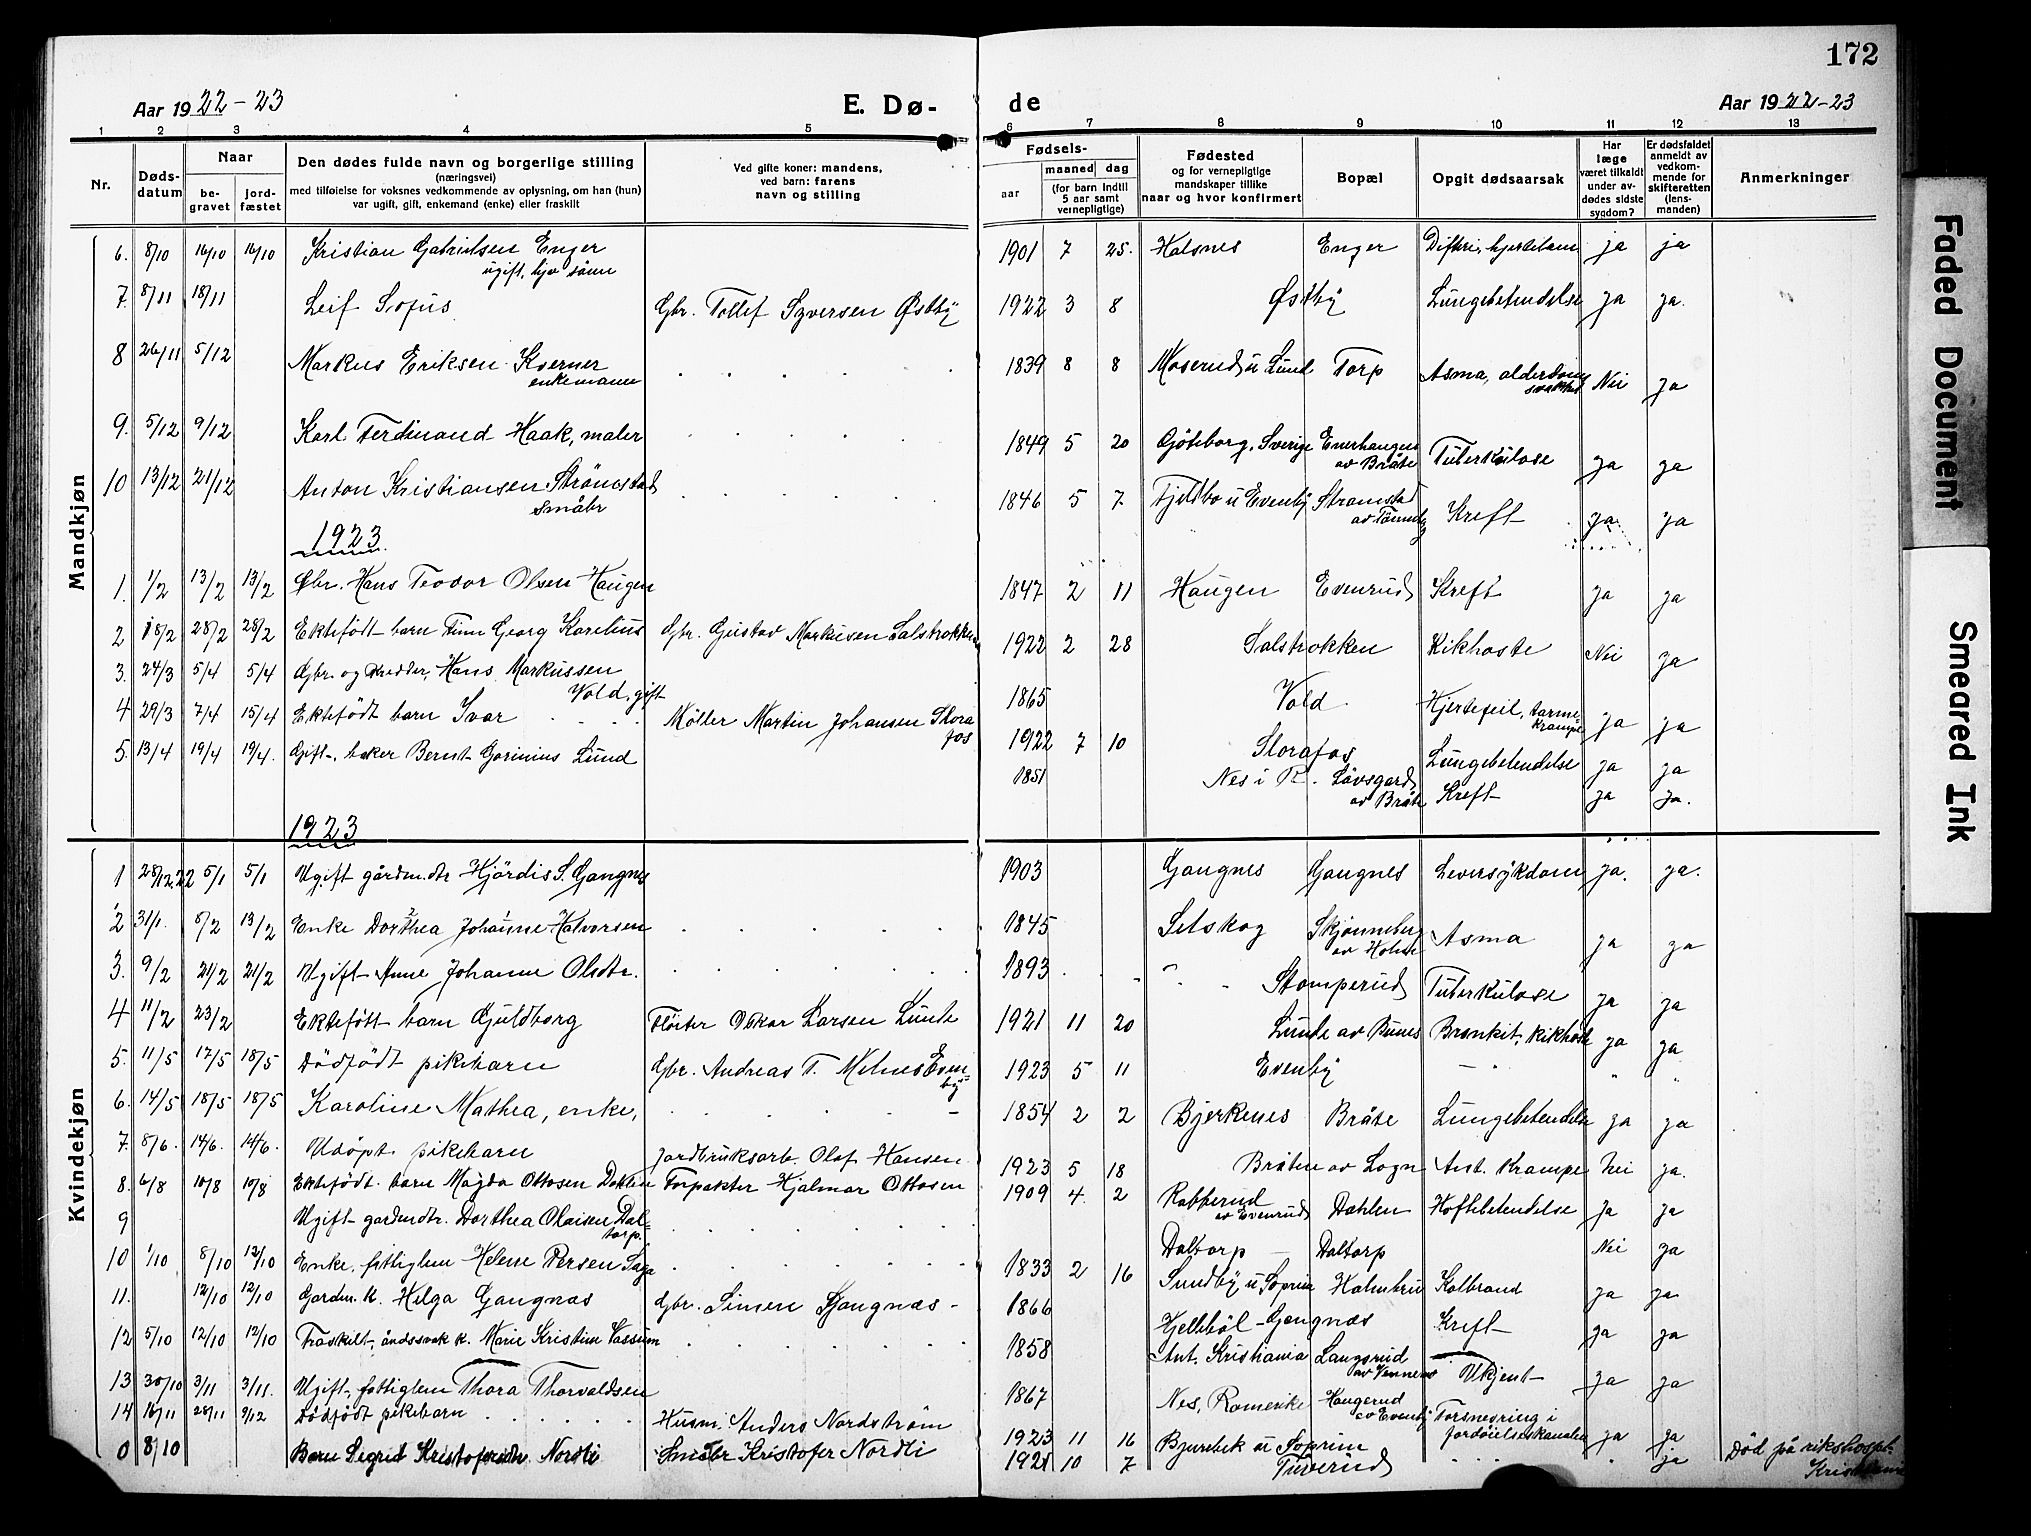 172
Aar 1922-23
E. Dø-
de
Aar 1922-23
1 2 3 4 5 6 7 8 9 10 11 12 13
Nr.
Døds-
datum
Naar
be-
gravet
jord-
fæstet
Den dødes fulde navn og borgerlige stilling
(næringsvei)
med tilføielse for voksnes vedkommende av oplysning, om han (hun)
var ugift, gift, enkemand (enke) eller fraskilt
Ved gifte koner: mandens,
ved barn: farens
navn og stilling
Fødsels-
aar
maaned dag
(for barn indtil
5 aar samt
vernepligtige)
Fødested
og for vernepligtige
mandskaper tillike
naar og hvor konfirmert
Bopæl
Opgit dødsaarsak
Har
læge
været tilkaldt
under av-
dødes sidste
sygdom?
Er dødsfaldet
anmeldt av
vedkom-
mende for
skifteretten
(lens-
manden)
Anmerkninger
Mandkjøn
6. 8/10 16/10 16/10 Kristian Gabrielsen Enger 1901 7 25. Halsnes Enger Difteri, hjertelam ja ja
ugift, hjv sönn
7. 8/11 18/11 Leif Sofus Gbr. Tollef Syversen Østby 1922 3 8 Østby Lungebetendelse ja ja.
8 26/11 5/12 Markus Eriksen Kverner 1839 8 8 Moserud u Lund Torp Asma, alderdoms Nei ja
enkemann svakhet
9. 5/12 9/12 Karl Ferdinand Haak, maler 1849 5 20 Göteborg, Sverige Enerhaugen Tuberkulose ja ja
av Bråte
10 13/12 21/12 Anton Kristiansen Strömstad 1846 5 7 Fjeldbo u Evenby Stromstad Kreft ja ja
småbr av Tömmby
1923
1. 1/2 13/2 13/2 Gbr. Hans Teodor Olsen Haugen 1847 2 11 Haugen Evenrud Kreft ja ja
2 18/2 28/2 28/2 Ektefödt barn Finn Georg Karelius Gbr. Gustav Markusen Salstrokken 1922 2 28 Salstrokken Kikhoste Nei ja
3. 24/3 5/4 5/4 Gbr. og skredder, Hans Markussen 1865 Vold Hjertefeil, tarm- ja ja
Vold, gift krampe
4 29/3 7/4 15/4 Ektefödt barn Ivar Möller Martin Johansen Stora 1922 7 10 Storafos Lungebetendelse ja ja
fos
5. 13/4 19/4 19/4. Gift baker Bernt Gorinius Lund 1851 Nes i R. Lövsgard Kreft ja ja.
av Bråte
1923
Kvindekjøn
1 28/12.22 5/1 5/1 Ugift gårdm.dtr Hjördis S. Gangnes 1903 Gangnes Gangnes Leversykdom ja. ja.
2 31/1. 8/2 13/2 Enke Dorthea Johanne Halvorsen 1845 Setskog Skjönneberg Asma ja ja
av Holme
3. 9/2 21/2 21/2 Ugift Anne Johanne Olsdtr. 1893 Stomperud Tuberkulose ja ja
4 11/2 23/2 Ektefött barn Guldborg Flöter Oskar Larsen Lunde 1921 11 20 Lunde av Bunes Bronkit, kikhoste ja ja
5. 11/5 17/5 18/5 Dödfödt pikebarn Gbr. Andreas T. Melnes Even- 1923 5 11 Evenby - " " "
by
6. 14/5 18/5 18/5 Karoline Mathea, enke, 1854 2 2 Bjerkenes Bråte Lungebetendelse ja ja
7. 8/6. 14/6. 14/6. Udöpt pikebarn Jordbruksarb. Olaf Hansen 1923 5 18 Bråten av Sogn Ant. Krampe Nei ja.
8. 6/8 10/8 10/8 Ektefödt barn Magda Ottosen Dahlen Forpakter Hjalmar Ottosen 1909 4. 2 Rabberud Dahlen Hoftebetendelse ja ja
av Evenrud
9 Ugift gardmdtr. Dorthea Olaisen Dal- Daltorp - Daltorp Nei ja
torp.
10 1/10 8/10 12/10 Enke, fattiglem Helene Persen Saga 1833 2 16 Sundby u Soprim Holmbru Kolbrand ja ja
11. 12/10 12/10 Gardm. k. Helga Gangnæs Gbr. Simen Gangnæs - 1866 Hjellebøl - Gangnæs Kreft ja ja
12 5/10 12/10 12/10 Fraskilt, åndssvak k. Marie Kristine Vassum 1858 Ant. Kristiania Langsrud Ukjent ja ja
av Vennevs
13 30/10 3/11 3/11. Ugift, fattiglem Thora Thorvaldsen 1867 Nes, Romerike Haugerud
av Evenby
14 16/11 28/11 9/12 Dödfödt pikebarn Husm. Anders Nordström 1923 11 16 Bjerebek u Soprim Forsnevring i ja ja
fördöielseskanalen
0 8/10 Barn Sigrid Kristofersdtr. Nordli Småbr Kristofer Nordli 1921 10 7 Tuverud " ja Död på rikshospt.
Faded Document
Smeared Ink